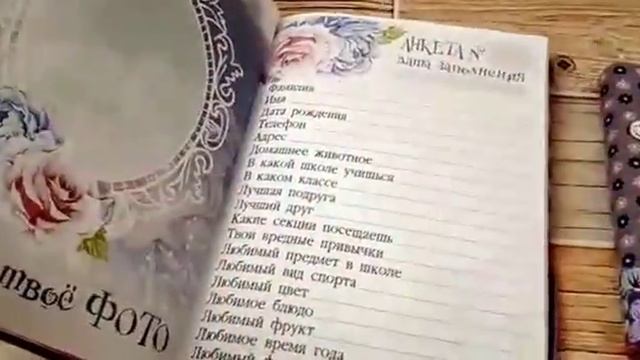 твоё ФОТО
АНКЕТА №
дата заполнения
Фамилия
Имя
Дата рождения
Телефон
Адрес
Домашнее животное
В какой школе учишься
В каком классе
Лучшая подруга
Лучший друг
Какие секции посещаешь
Твои вредные привычки
Любимый предмет в школе
Любимый вид спорта
Любимый цвет
Любимое блюдо
Любимый фрукт
Любимое время года
Любимый